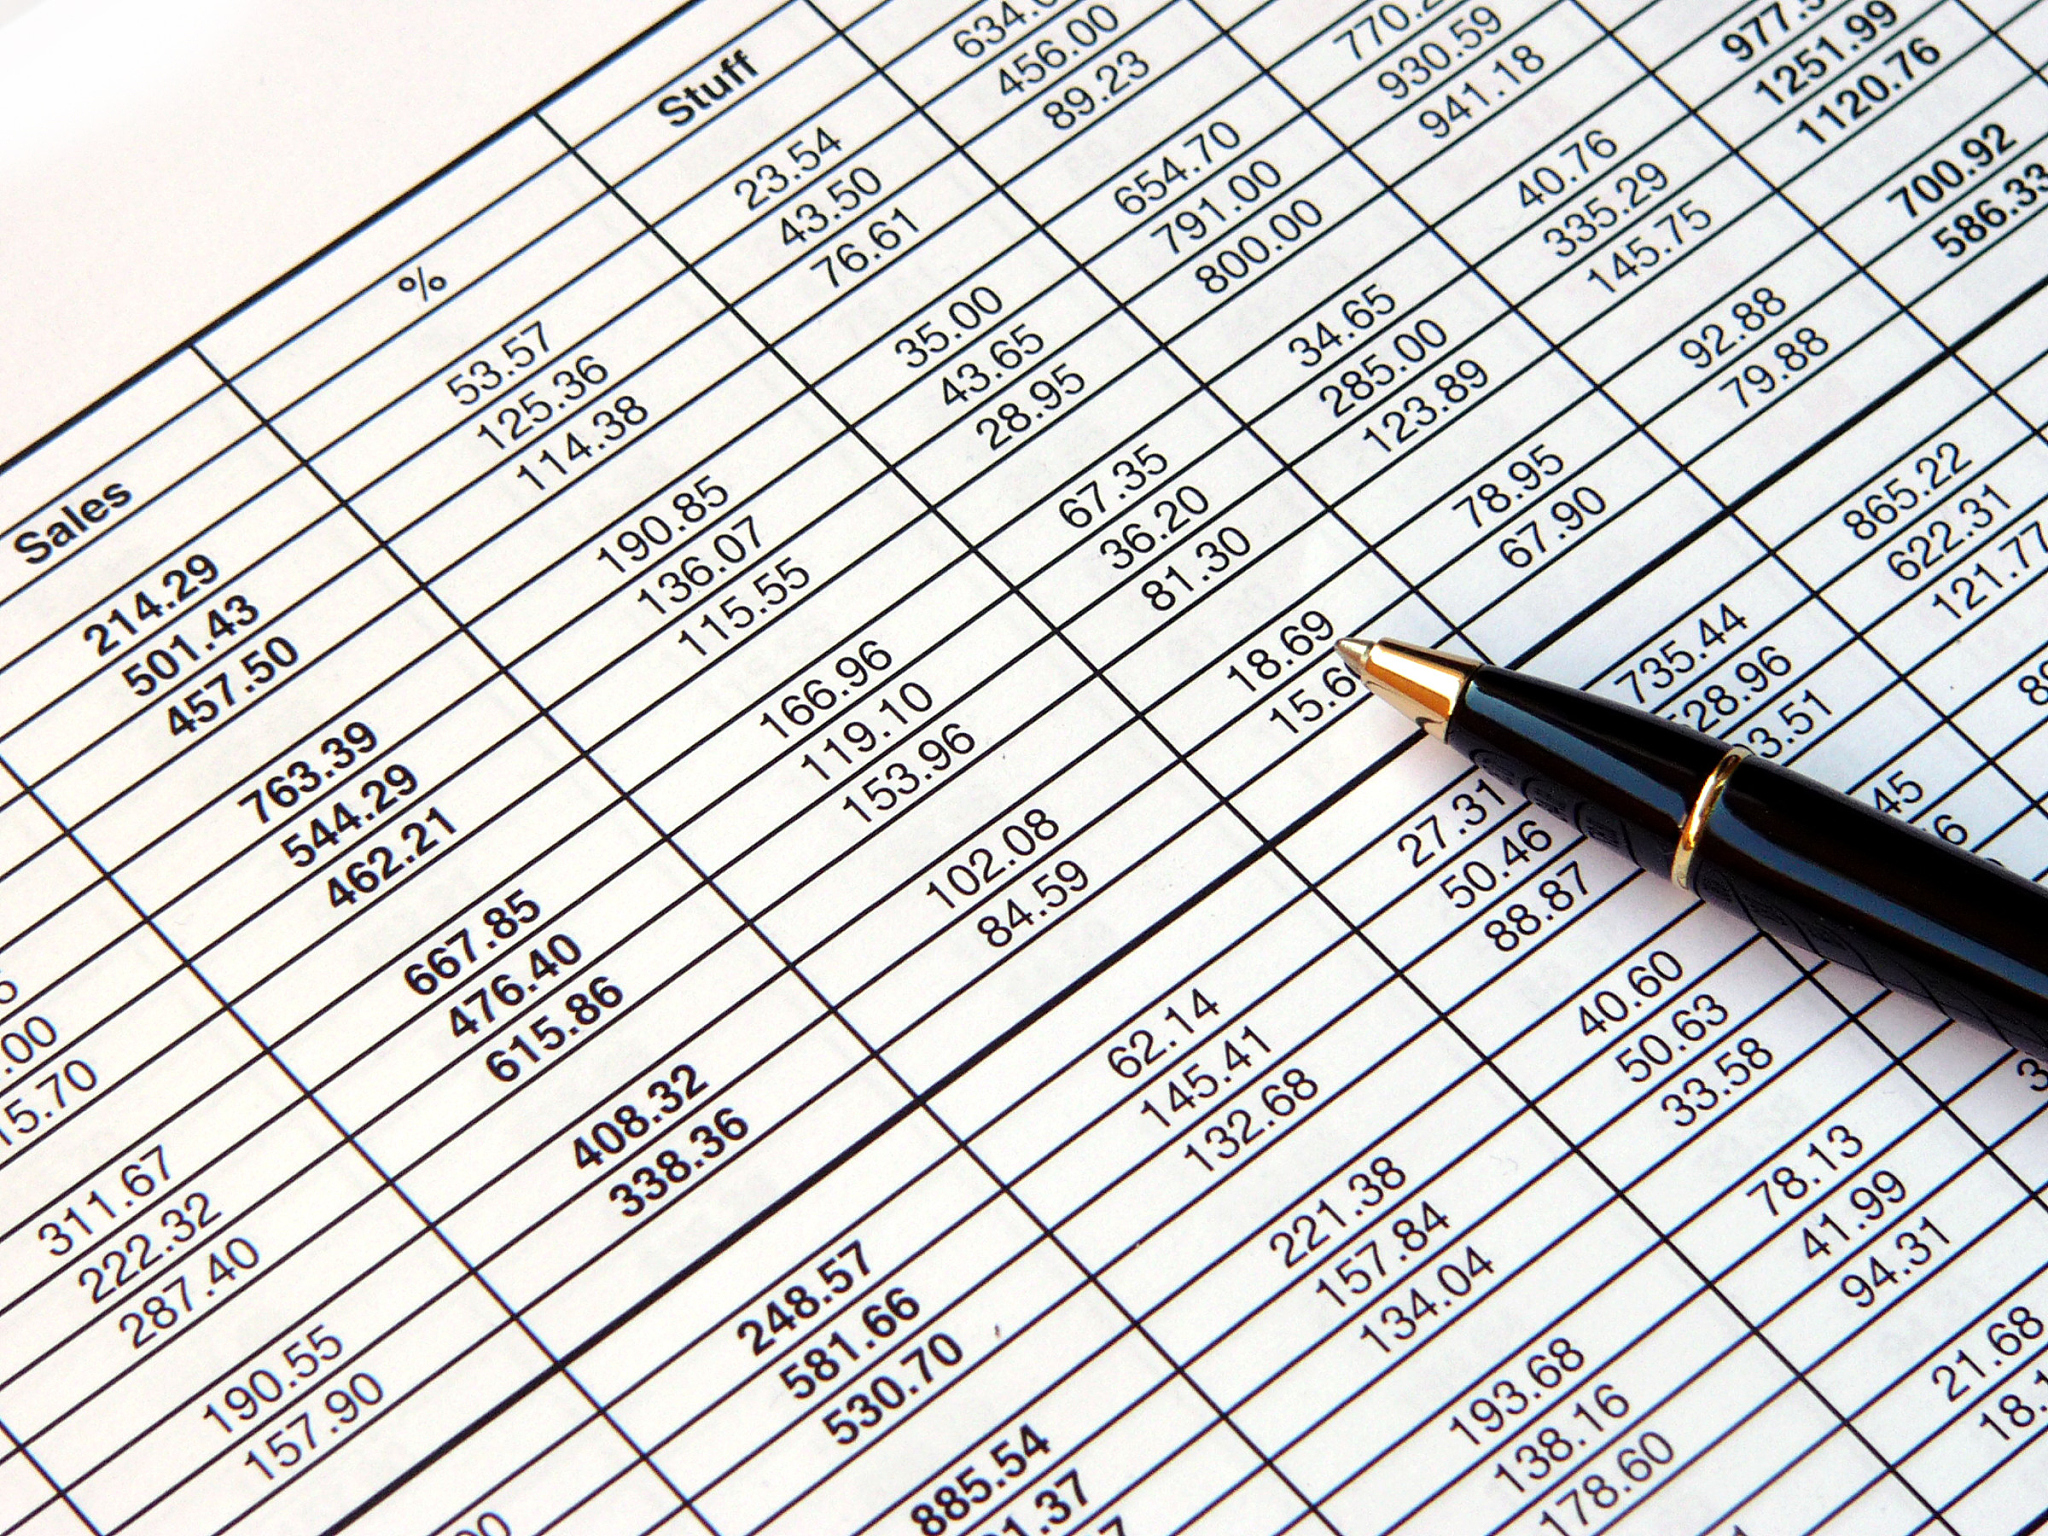 Sales % Stuff
214.29 53.57 23.54
501.43 125.36 43.50 456.00
457.50 114.38 76.61 89.23
763.39 190.85 35.00 654.70
.00 544.29 136.07 43.65 791.00 930.59
15.70 462.21 115.55 28.95 800.00 941.18
311.67 667.85 166.96 67.35 34.65 40.76
222.32 476.40 119.10 36.20 285.00 335.29 1251.99
287.40 615.86 153.96 81.30 123.89 145.75 1120.76
190.55 408.32 102.08 18.69 78.95 92.88 700.92
157.90 338.36 84.59 15.6 67.90 79.88 586.33
248.57 62.14 27.31 735.44 865.22
581.66 145.41 50.46 28.96 622.31
530.70 132.68 88.87 3.51 121.77
885.54 221.38 40.60 45
1.37 157.84 50.63
134.04 33.58
193.68 78.13
138.16 41.99
178.60 94.31
21.68
18.